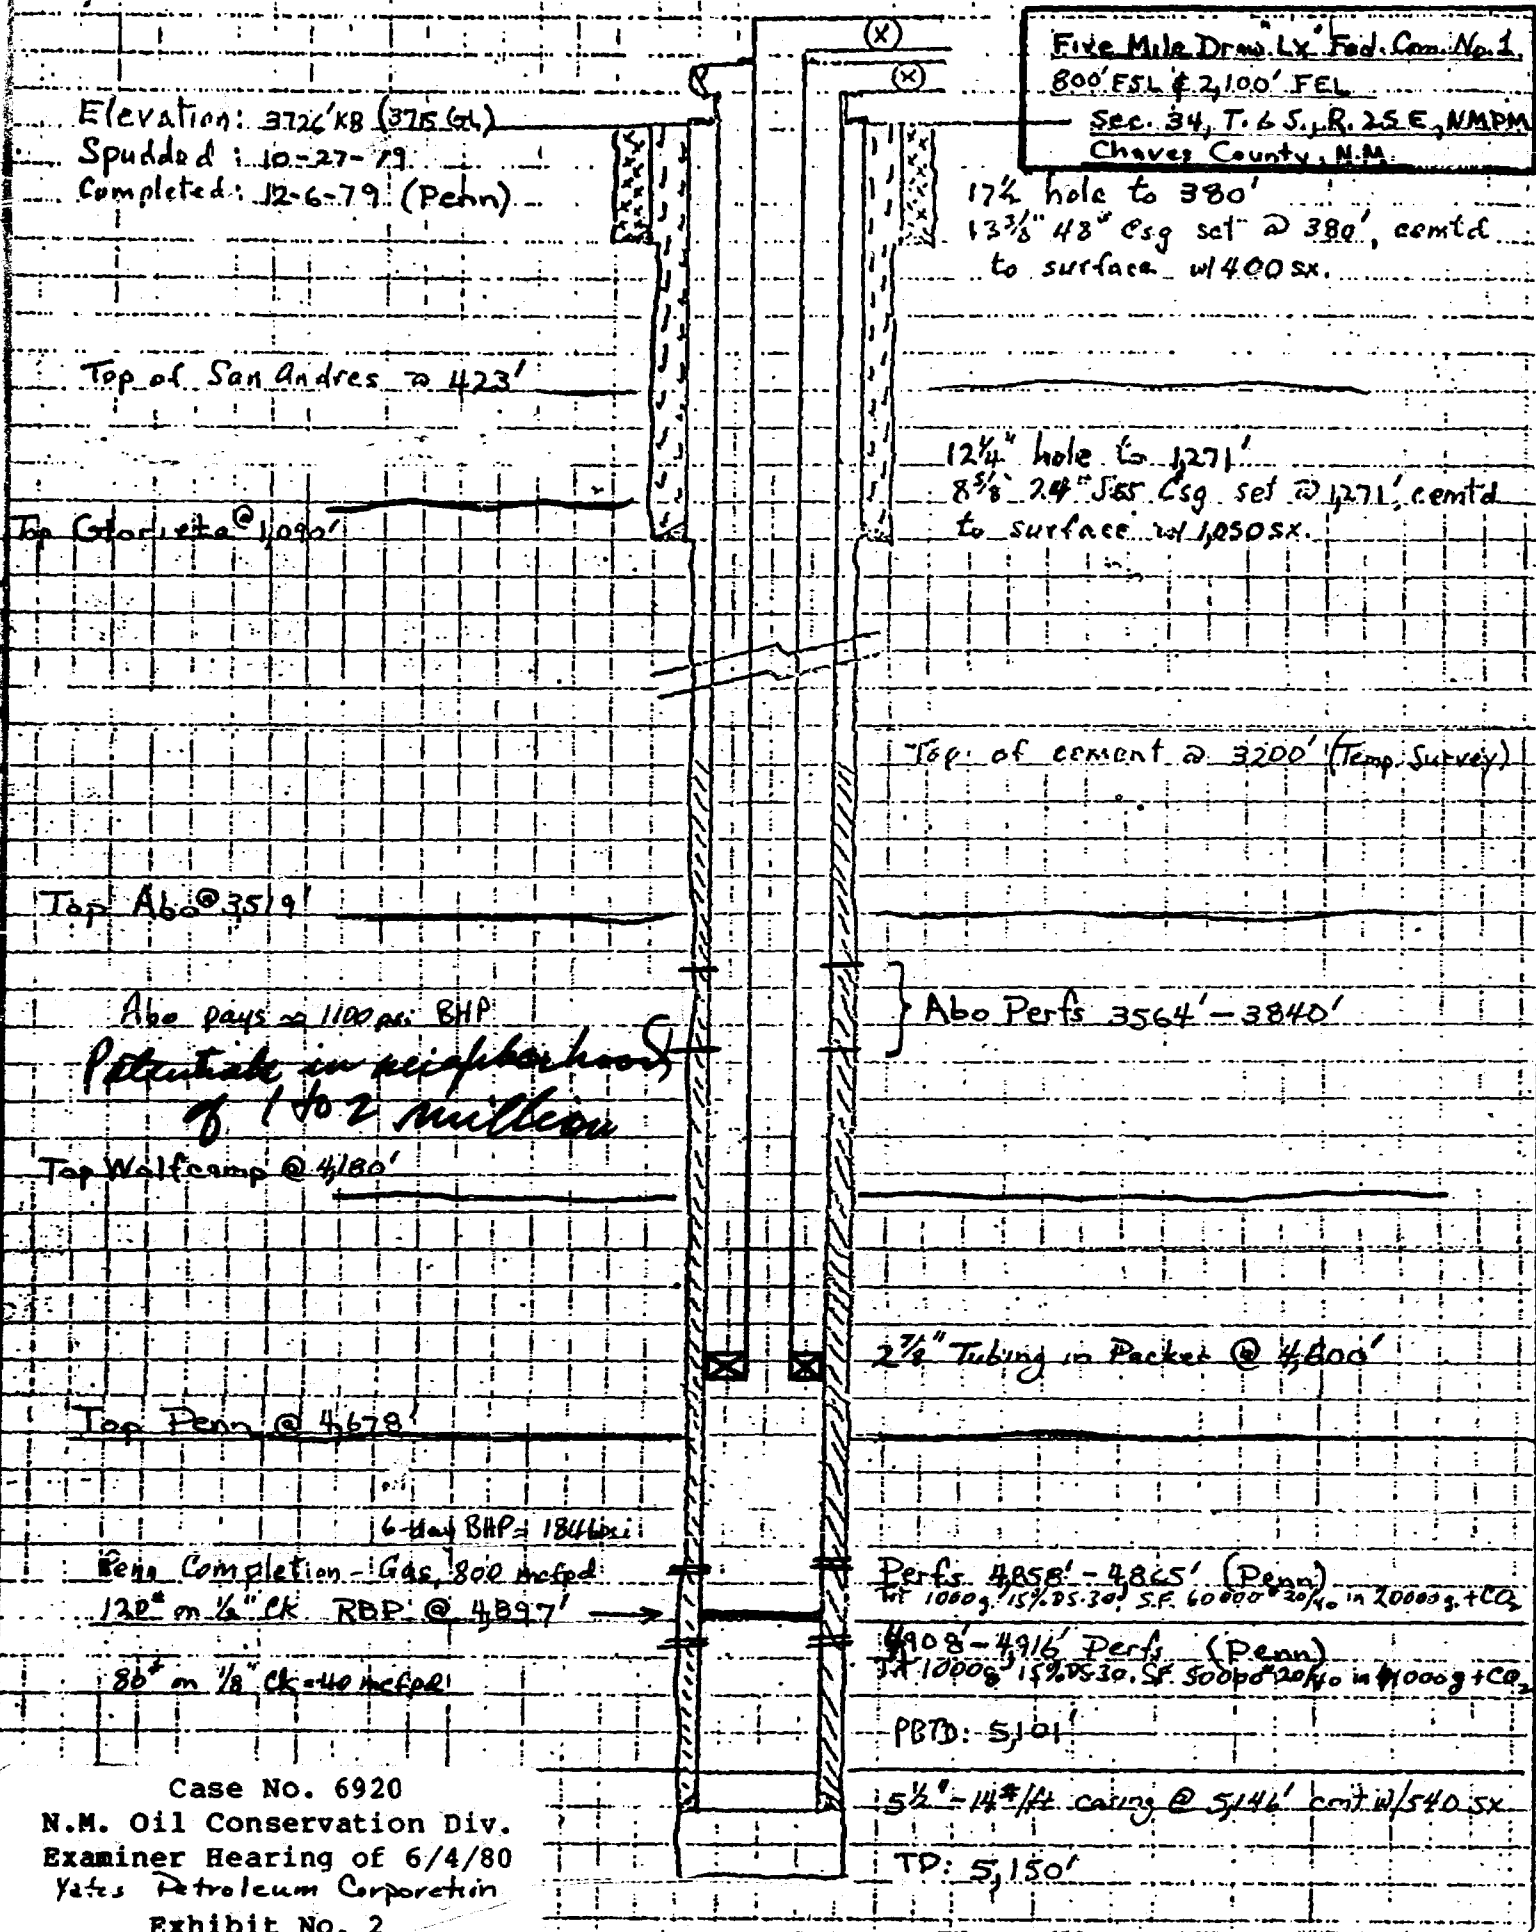 Five Mile Draw "LX" Fed. Com. No. 1
800' FSL & 2,100' FEL
Sec. 34, T. 6 S., R. 25 E, NMPM
Chaves County, N.M.
Elevation: 3726' KB (3715 GL)
Spudded: 10-27-79
Completed: 12-6-79 (Penn)
17½ hole to 380'
13⅜" 48# Csg set @ 380', cemtd
to surface w/ 400 sx.
Top of San Andres @ 423'
12¼" hole to 1,271'
8⅝" 24# J-55 Csg set @ 1,271', cemtd
to surface w/ 1,050 sx.
Top Glorieta @ 1,090'
Top of cement @ 3200' (Temp. Survey)
Top Abo @ 3,519'
Abo pays ≈ 1100 psi BHP
Abo Perfs 3564' - 3840'
Potentials in neighborhood
of 1 to 2 million
Top Wolfcamp @ 4,180'
2⅞" Tubing in Packer @ 4,600'
Top Penn @ 4,678'
6-day BHP = 1846 psi
Penn Completion - Gas, 800 mcfpd
120# on ½" Ck RBP @ 4,897'
Perfs 4,858' - 4,865' (Penn)
Trt 1000g 15% DS-30, S.F. 60000# 20/40 in 20000g. + CO2
4,908' - 4,916' Perfs (Penn)
Trt 1000g 15% DS-30. S.F. 50000# 20/40 in 000g + CO2
80# on ⅛" Ck = 40 mcfpd
PBTD: 5,101'
5½" - 14#/ft casing @ 5,146' cmt w/540 sx
TD: 5,150'
Case No. 6920
N.M. Oil Conservation Div.
Examiner Hearing of 6/4/80
Yates Petroleum Corporation
Exhibit No. 2